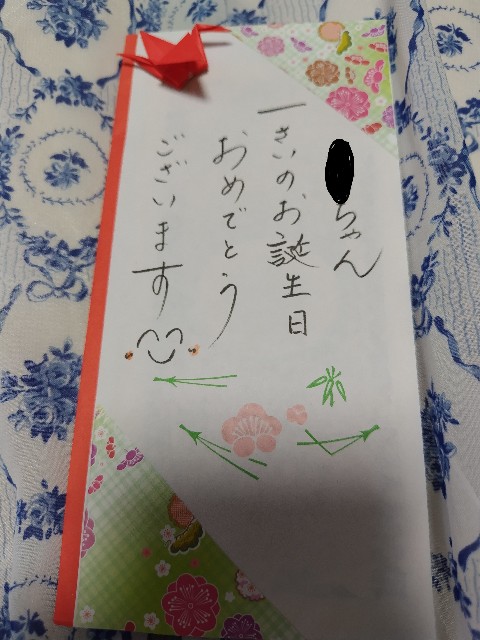 ちゃん
一さいのお誕生日
おめでとう
ございます